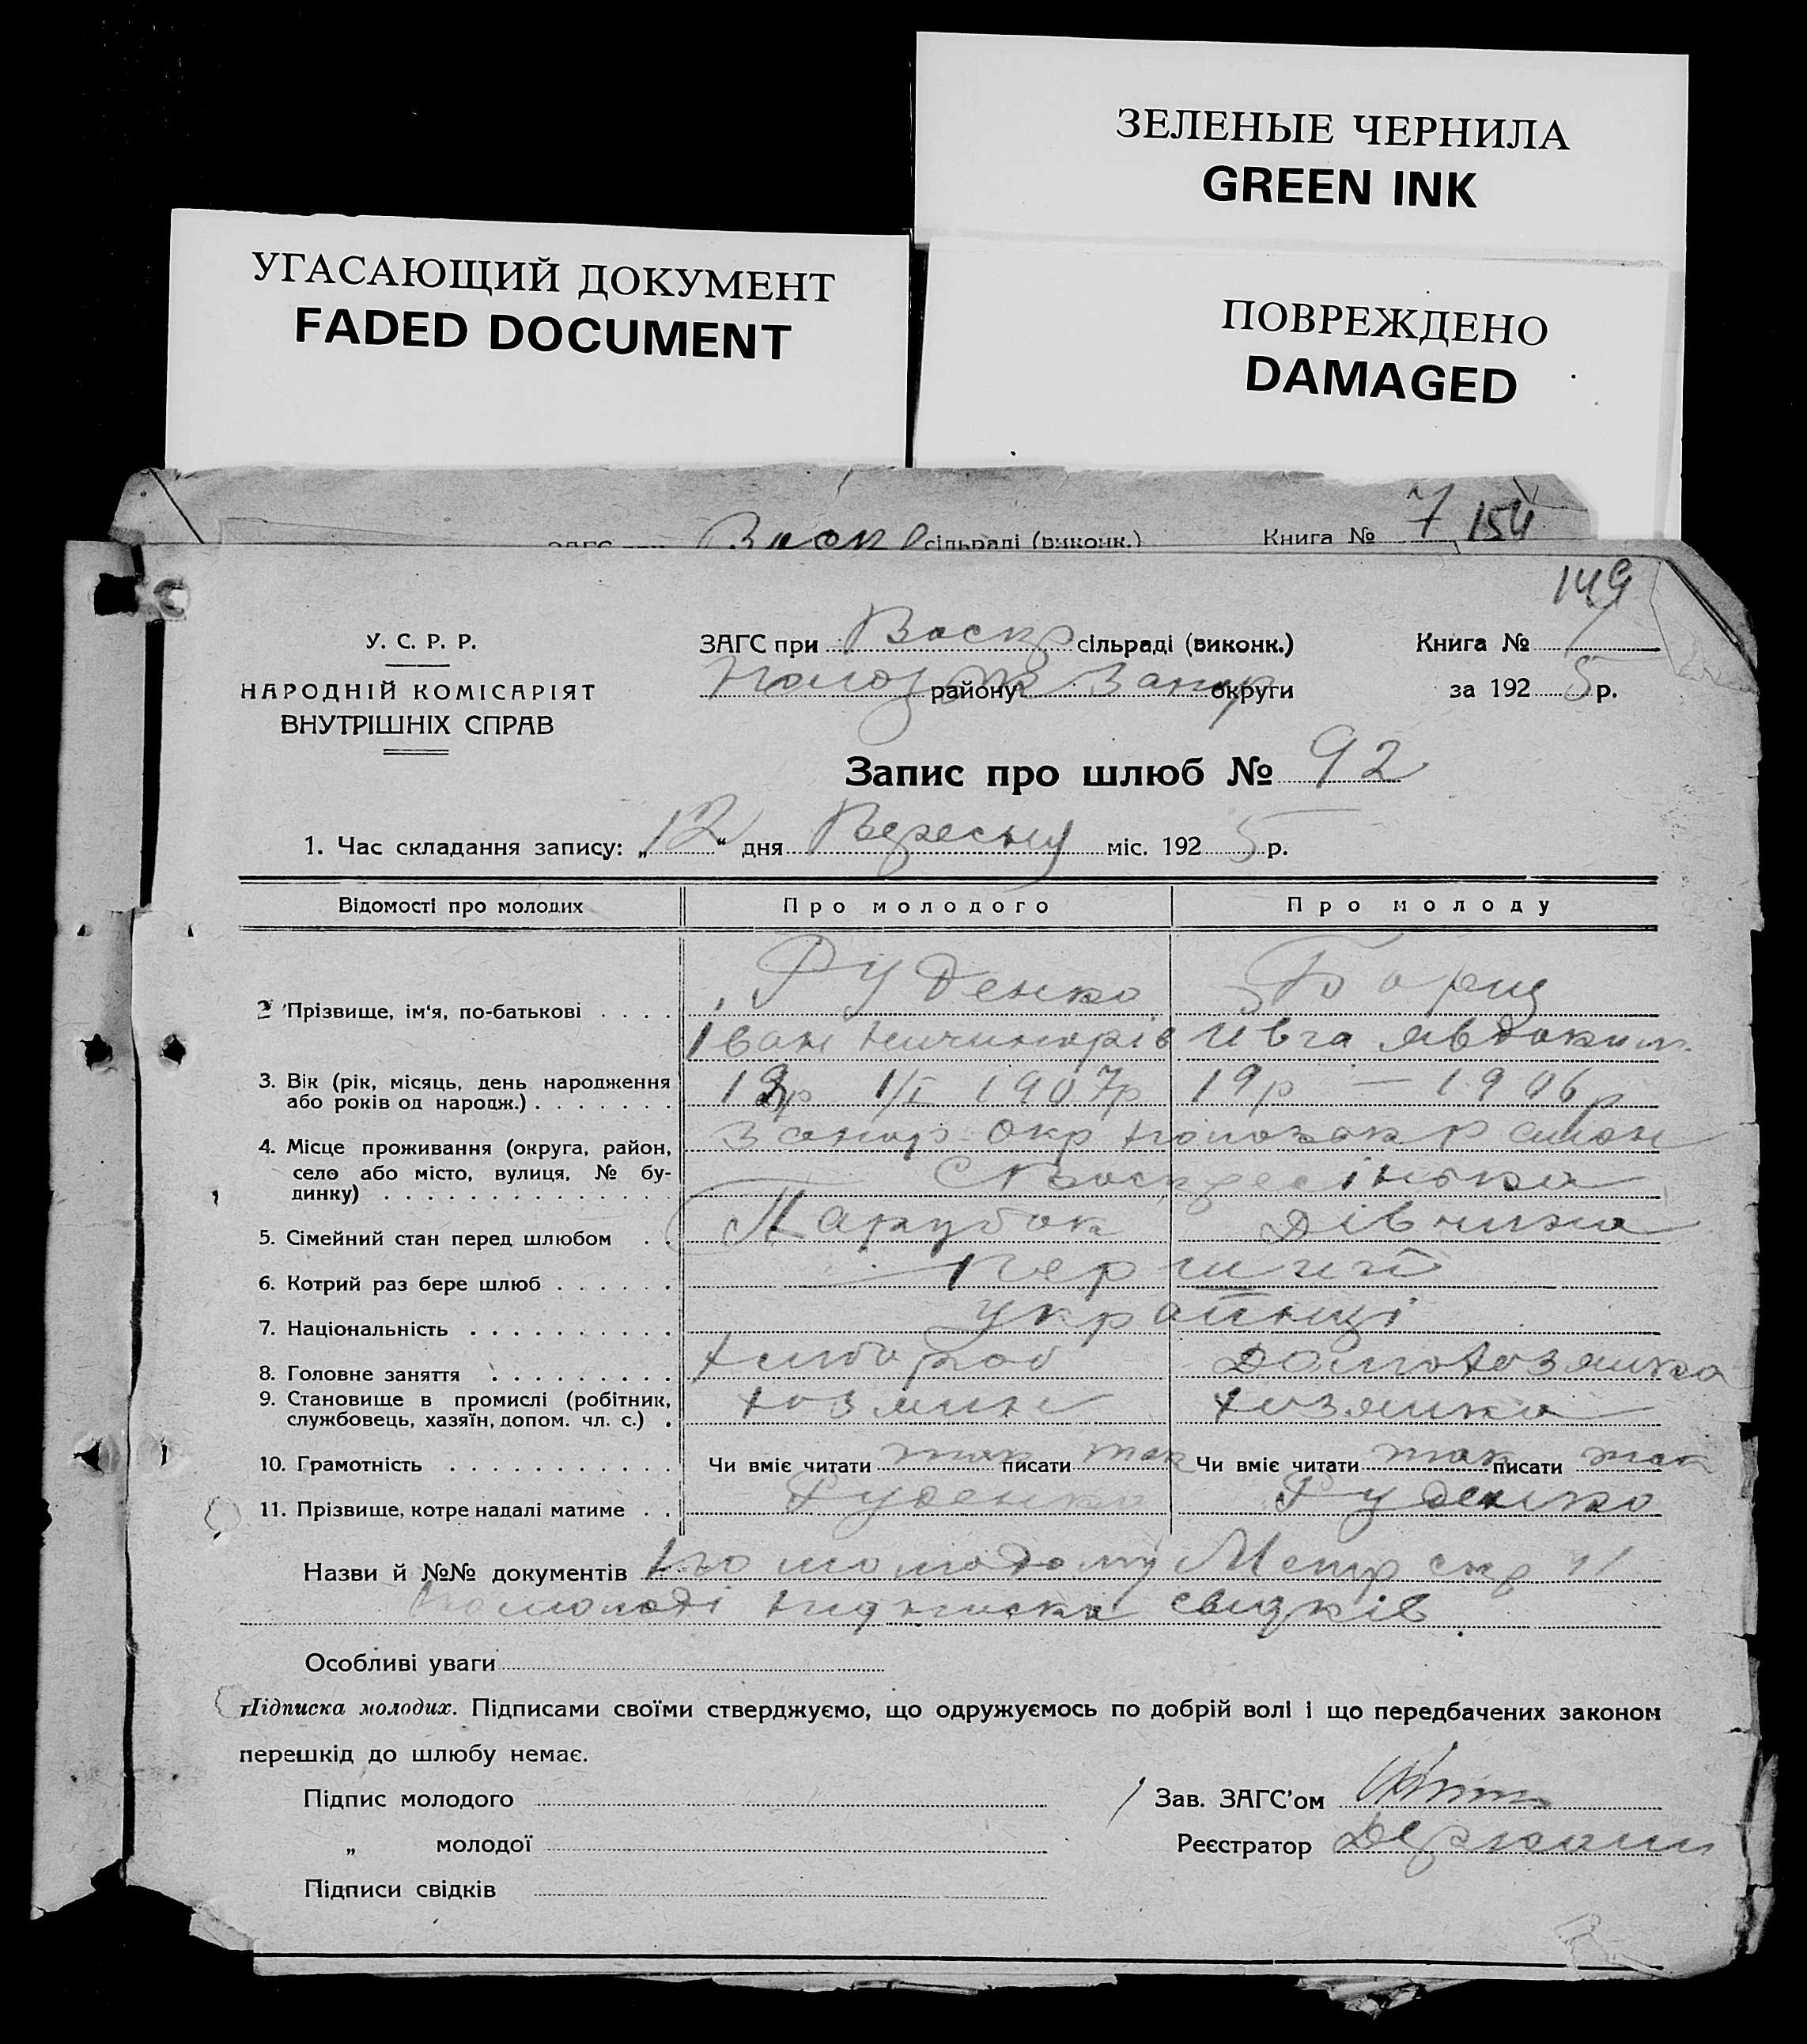 ЗЕЛЕНЫЕ ЧЕРНИЛА
GREEN INK
УГАСАЮЩИЙ ДОКУМЕНТ
FADED DOCUMENT
ПОВРЕЖДЕНО
DAMAGED
сільраді (виконк.) Книга № 7 154
149
У. С. Р. Р.
ЗАГС при Воскр сільраді (виконк.) Книга №
НАРОДНІЙ КОМІСАРІЯТ
району Запор округи за 1925 р.
ВНУТРІШНІХ СПРАВ
Запис про шлюб № 92
1. Час складання запису: „12“ дня Вересня міс. 1925 р.
Відомості про молодих Про молодого Про молоду
2 Прізвище, ім‘я, по-батькові . . . . Руденко
Іван Ничипорів Ивга Явдоким
3. Вік (рік, місяць, день народження
або років од народж.) . . . . . . . 1/I 1907р 19р — 1906р
4. Місце проживання (округа, район, Запор окр район
село або місто, вулиця, № бу-
динку) . . . . . . . . . . . . . . С Воскресінька
5. Сімейний стан перед шлюбом . . Парубок Дівчина
6. Котрий раз бере шлюб . . . . . . Перший
7. Національність . . . . . . . . . . Українці
8. Головне заняття . . . . . . . . . хлібороб Домохозяйка
9. Становище в промислі (робітник,
службовець, хазяїн, допом. чл. с.) . хозяин хозяйка
10. Грамотність . . . . . . . . . . . Чи вміє читати так писати так Чи вміє читати так писати так
11. Прізвище, котре надалі матиме . . Руденко Руденко
Назви й №№ документів По молодому Метр
По молоді підписка свидків
Особливі уваги
Підписка молодих. Підписами своїми стверджуємо, що одружуємось по добрій волі і що передбачених законом
перешкід до шлюбу немає.
Підпис молодого Зав. ЗАГС’ом
„ молодої Реєстратор
Підписи свідків